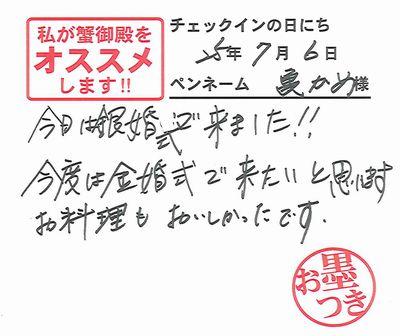 私が蟹御殿を
オススメ
します!!
チェックインの日にち
25年7月6日
ペンネーム 様
今日は銀婚式で来ました!!
今度は金婚式で来たいと思います
お料理もおいしかったです.
お墨つき